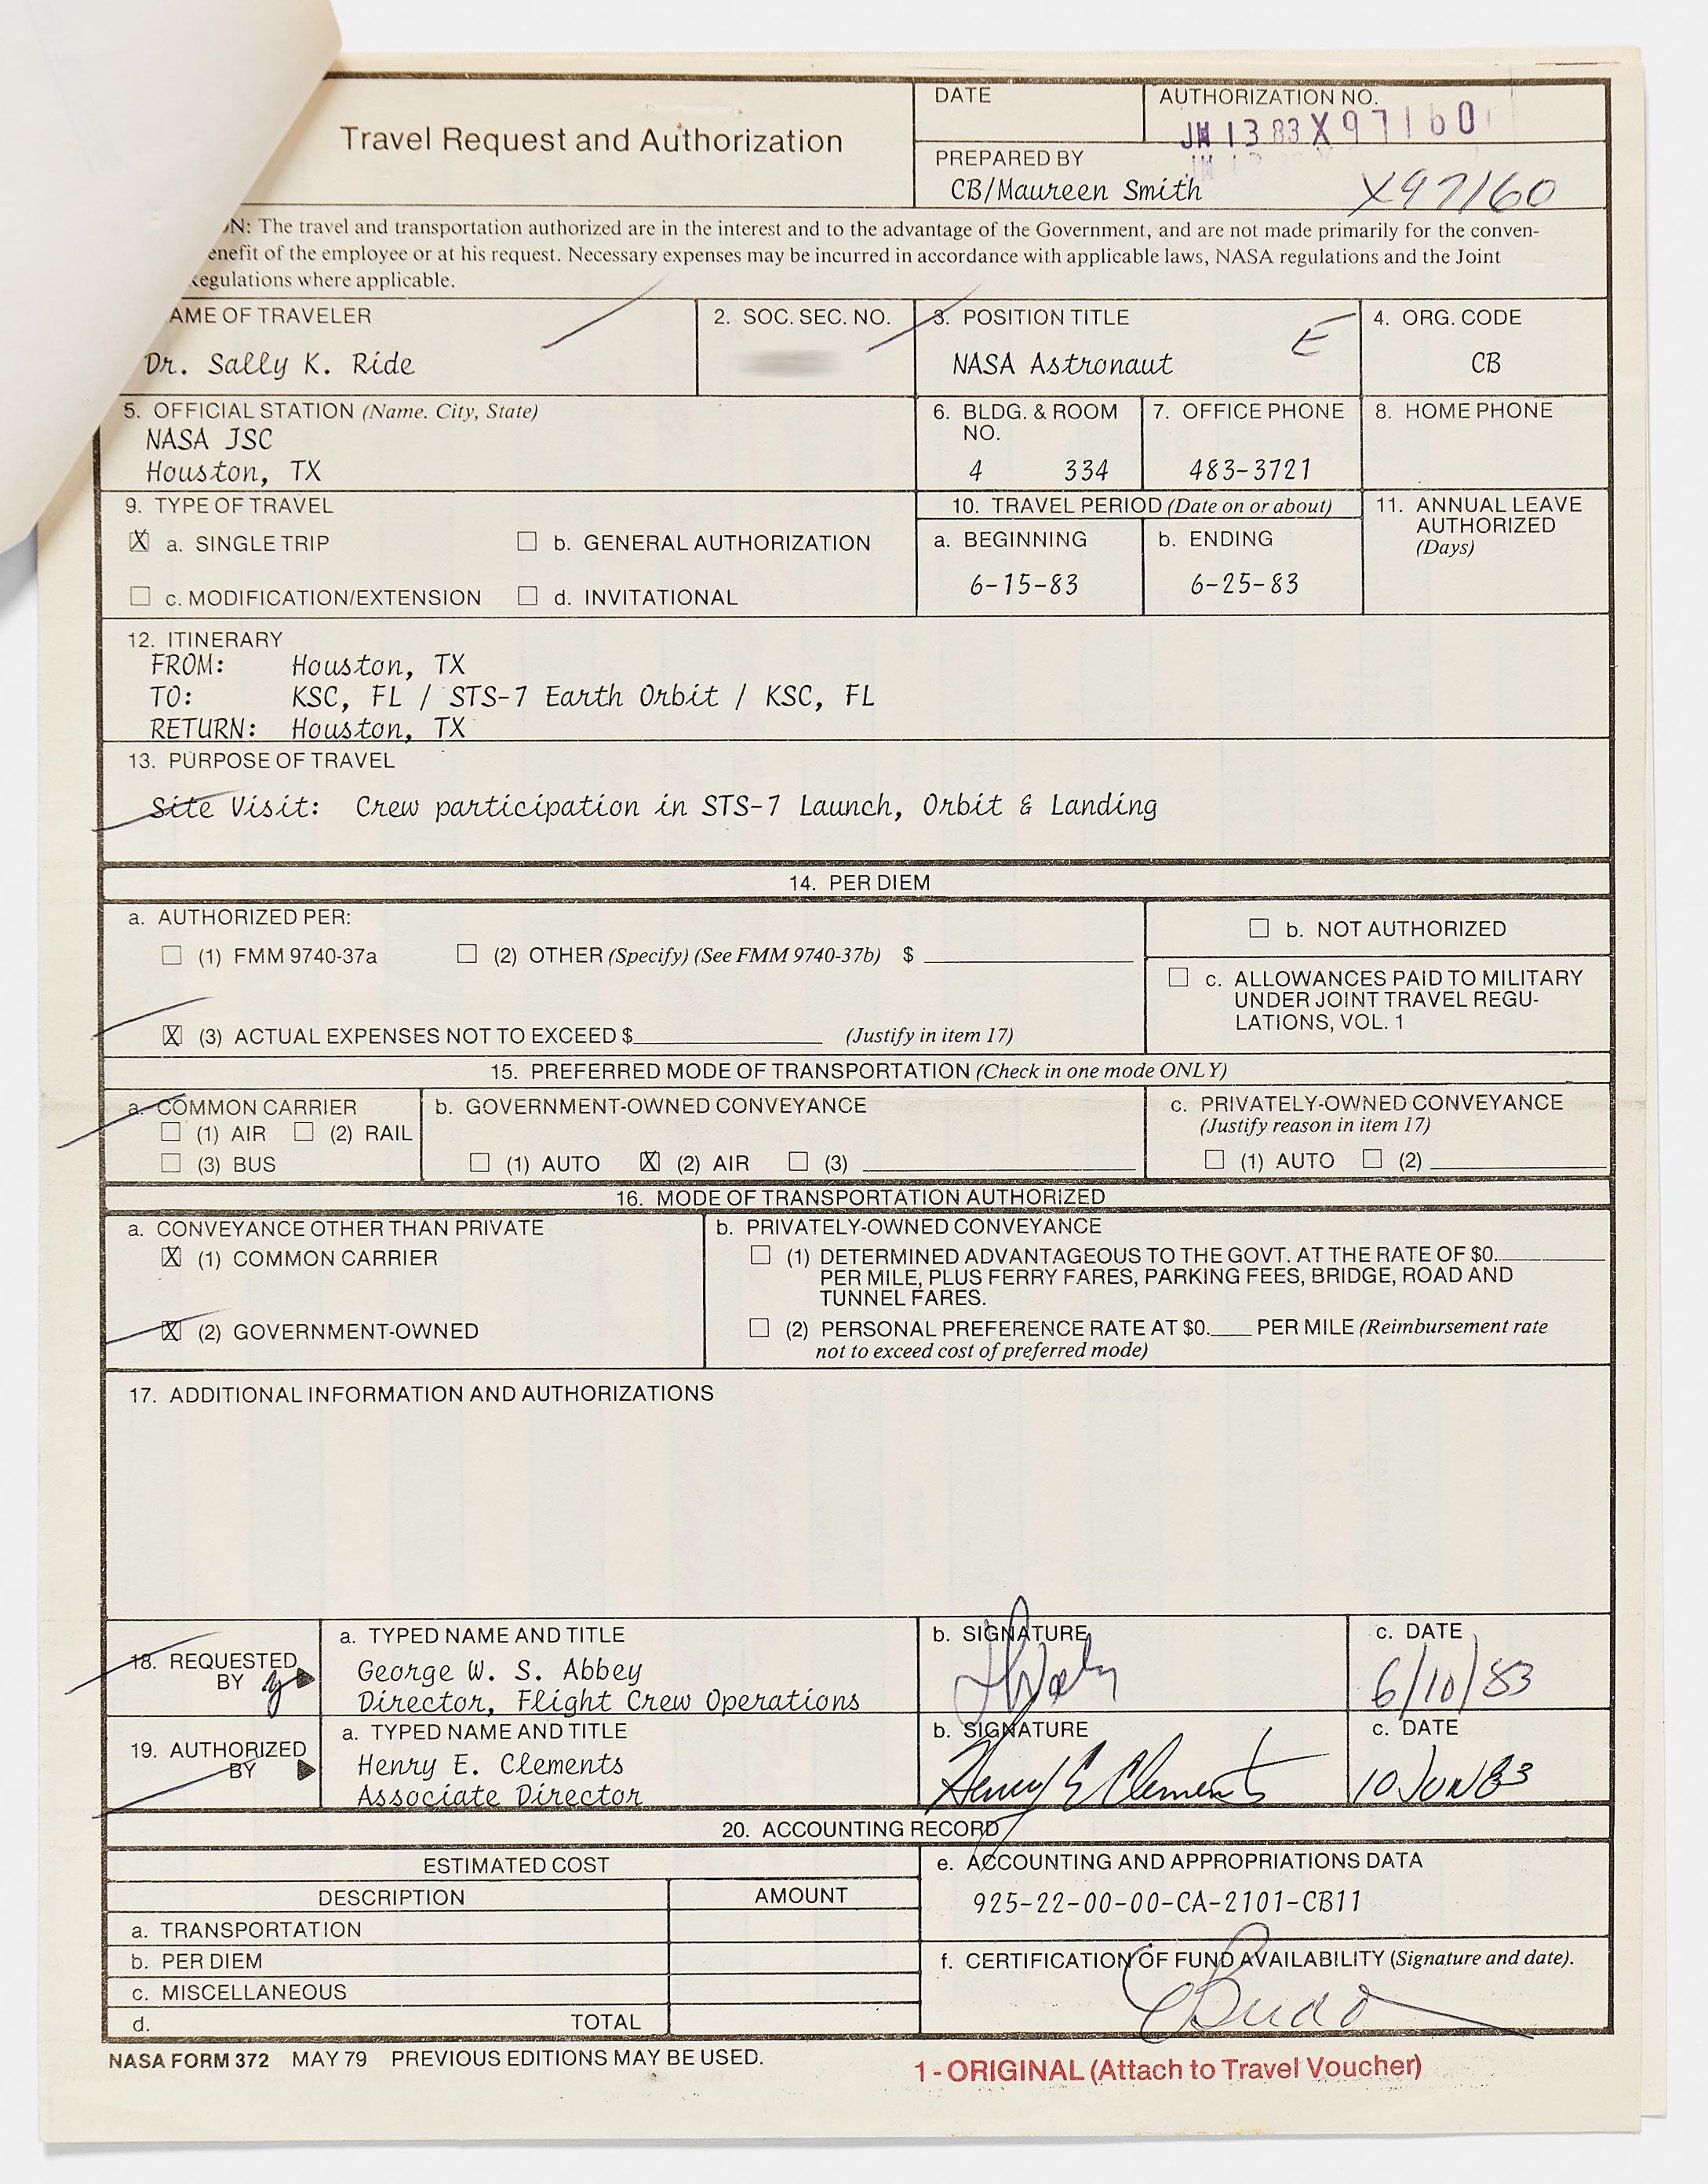 Travel Request and Authorization
DATE
AUTHORIZATION NO.
JN 13 83 X97160
PREPARED BY
CB/Maureen Smith
X97160
N: The travel and transportation authorized are in the interest and to the advantage of the Government, and are not made primarily for the conven-
enefit of the employee or at his request. Necessary expenses may be incurred in accordance with applicable laws, NASA regulations and the Joint
egulations where applicable.
AME OF TRAVELER
Dr. Sally K. Ride
2. SOC. SEC. NO.
3. POSITION TITLE
NASA Astronaut
E
4. ORG. CODE
CB
5. OFFICIAL STATION (Name. City, State)
NASA JSC
Houston, TX
6. BLDG. & ROOM
NO.
4 334
7. OFFICE PHONE
483-3721
8. HOME PHONE
9. TYPE OF TRAVEL
X a. SINGLE TRIP
b. GENERAL AUTHORIZATION
c. MODIFICATION/EXTENSION
d. INVITATIONAL
10. TRAVEL PERIOD (Date on or about)
a. BEGINNING
6-15-83
b. ENDING
6-25-83
11. ANNUAL LEAVE
AUTHORIZED
(Days)
12. ITINERARY
FROM: Houston, TX
TO: KSC, FL / STS-7 Earth Orbit / KSC, FL
RETURN: Houston, TX
13. PURPOSE OF TRAVEL
Site Visit: Crew participation in STS-7 Launch, Orbit & Landing
14. PER DIEM
a. AUTHORIZED PER:
(1) FMM 9740-37a
(2) OTHER (Specify) (See FMM 9740-37b) $
X (3) ACTUAL EXPENSES NOT TO EXCEED $ (Justify in item 17)
b. NOT AUTHORIZED
c. ALLOWANCES PAID TO MILITARY
UNDER JOINT TRAVEL REGU-
LATIONS, VOL. 1
15. PREFERRED MODE OF TRANSPORTATION (Check in one mode ONLY)
a. COMMON CARRIER
(1) AIR (2) RAIL
(3) BUS
b. GOVERNMENT-OWNED CONVEYANCE
(1) AUTO X (2) AIR (3)
c. PRIVATELY-OWNED CONVEYANCE
(Justify reason in item 17)
(1) AUTO (2)
16. MODE OF TRANSPORTATION AUTHORIZED
a. CONVEYANCE OTHER THAN PRIVATE
X (1) COMMON CARRIER
X (2) GOVERNMENT-OWNED
b. PRIVATELY-OWNED CONVEYANCE
(1) DETERMINED ADVANTAGEOUS TO THE GOVT. AT THE RATE OF $0.
PER MILE, PLUS FERRY FARES, PARKING FEES, BRIDGE, ROAD AND
TUNNEL FARES.
(2) PERSONAL PREFERENCE RATE AT $0. PER MILE (Reimbursement rate
not to exceed cost of preferred mode)
17. ADDITIONAL INFORMATION AND AUTHORIZATIONS
18. REQUESTED
BY
a. TYPED NAME AND TITLE
George W. S. Abbey
Director, Flight Crew Operations
b. SIGNATURE
c. DATE
6/10/83
19. AUTHORIZED
BY
a. TYPED NAME AND TITLE
Henry E. Clements
Associate Director
b. SIGNATURE
Henry E Clements
c. DATE
10 JUN 83
20. ACCOUNTING RECORD
ESTIMATED COST
DESCRIPTION
AMOUNT
a. TRANSPORTATION
b. PER DIEM
c. MISCELLANEOUS
d. TOTAL
e. ACCOUNTING AND APPROPRIATIONS DATA
925-22-00-00-CA-2101-CB11
f. CERTIFICATION OF FUND AVAILABILITY (Signature and date).
NASA FORM 372 MAY 79 PREVIOUS EDITIONS MAY BE USED.
1 - ORIGINAL (Attach to Travel Voucher)